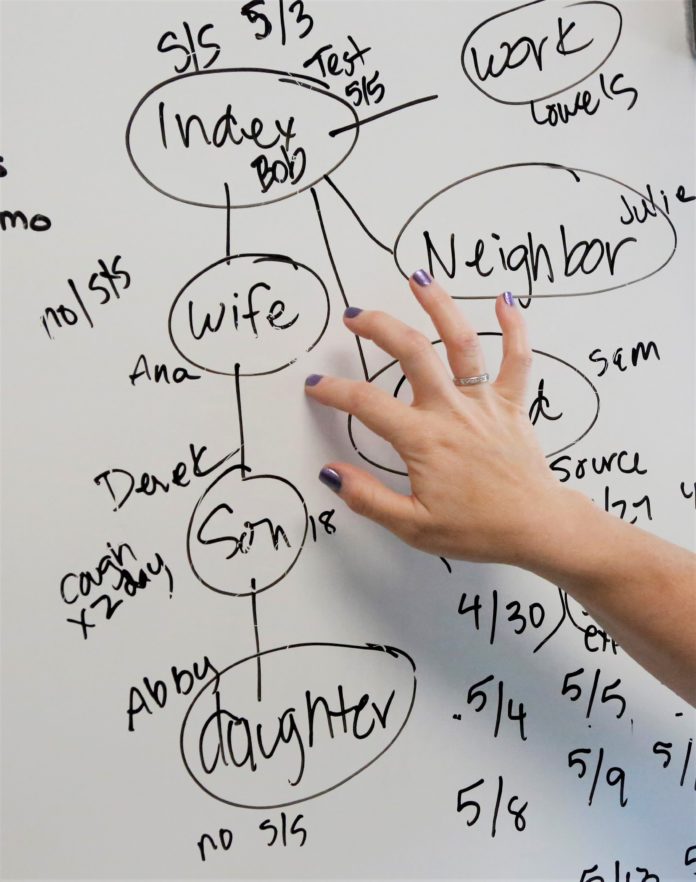 S/S 5/3
Test
5/5
Index
Bob
work
Lowe's
Neighbor
Julie
mo
no/s/s
wife
Ana
Sam
source
/27
Derek
Son
18
cough
x2 day,
4/30
5/4
5/5
5/9
5/
5/8
Abby
daughter
no S/S